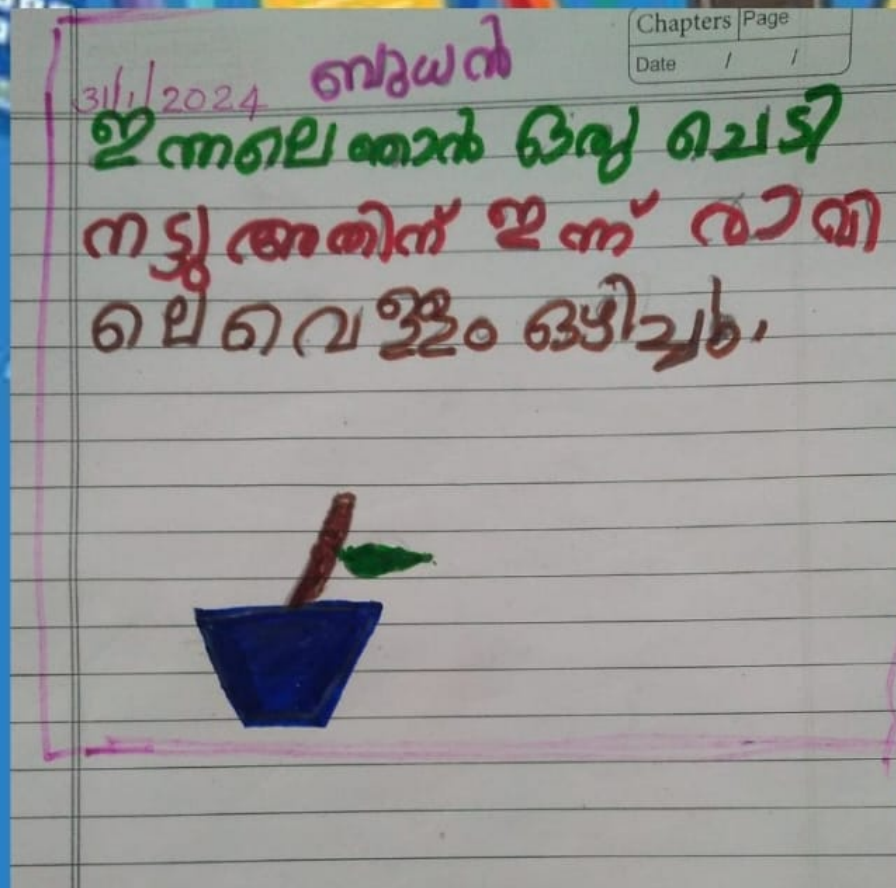 Chapters Page
Date / /
31/1/2024 ബുധൻ
ഇന്നലെ ഞാൻ ഒരു ചെടി
നട്ടു അതിന് ഇന്ന് രാവി
ലെ വെള്ളം ഒഴിച്ചു.